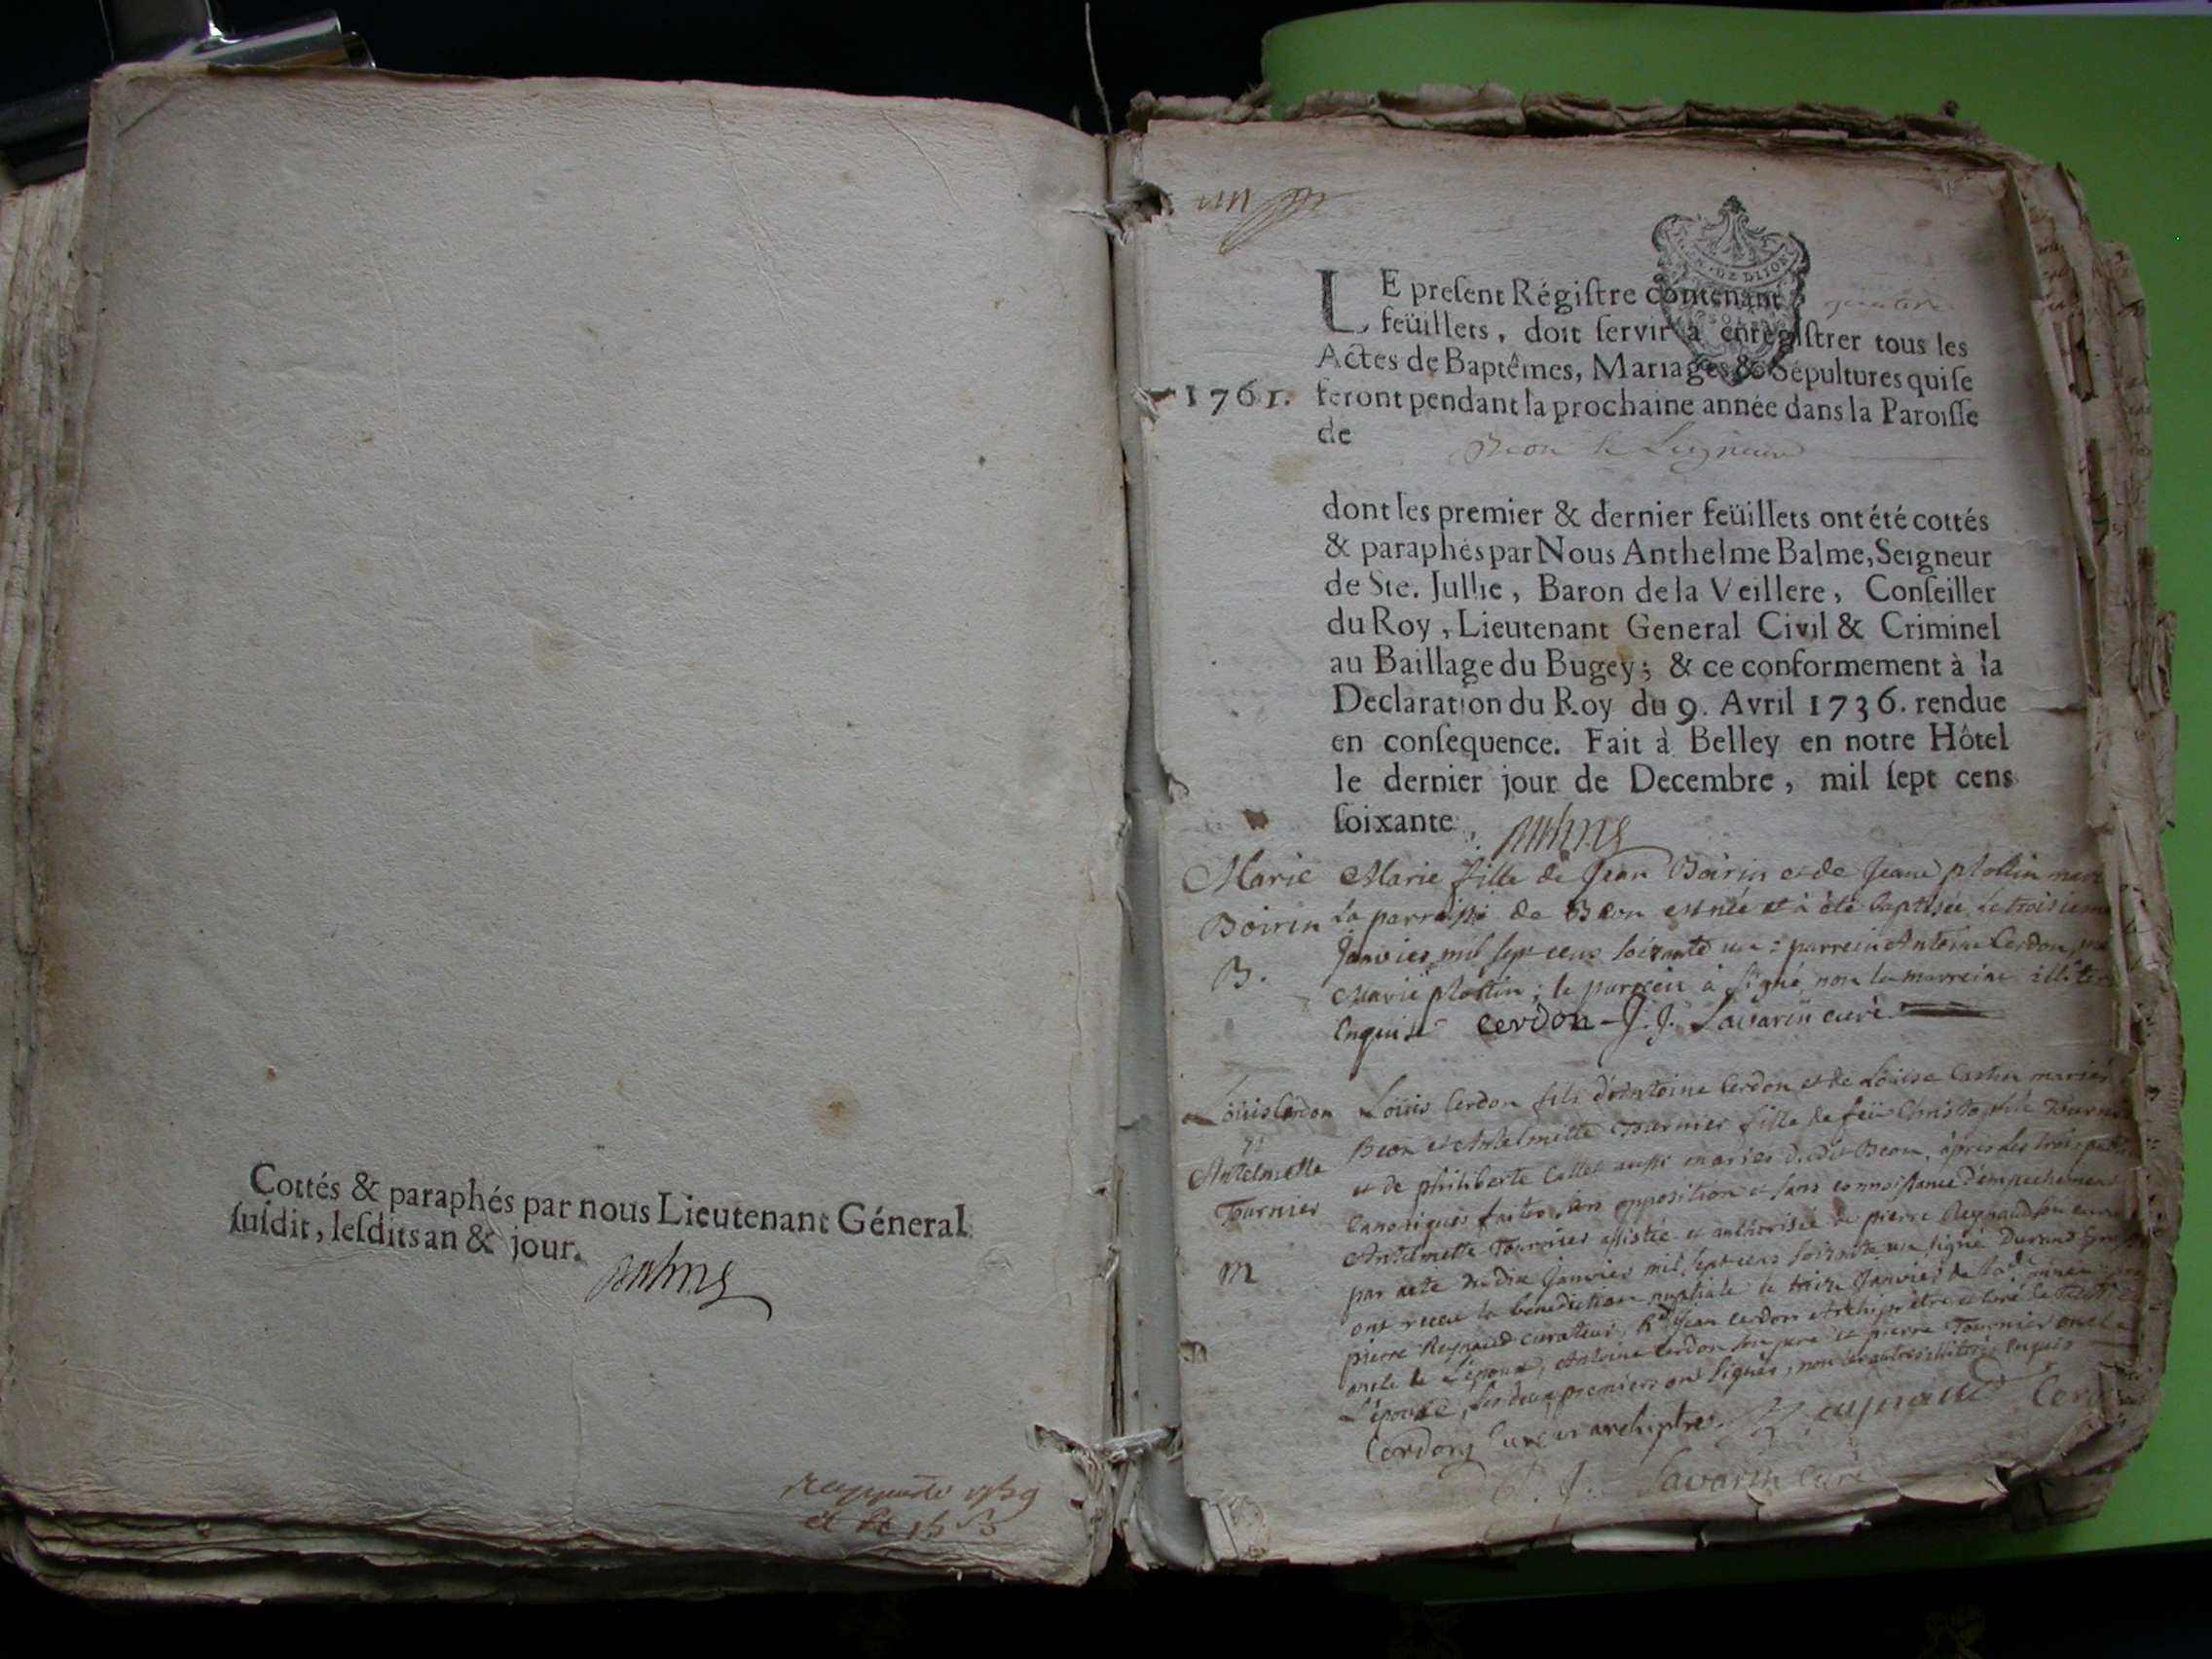 Cottés & paraphés par nous Lieutenant Géneral
ſuſdit, leſdits an & jour.
un
GEN. DE DIJON
LE preſent Régiſtre contenant
feüillets, doit ſervir à enregiſtrer tous les
Actes de Baptêmes, Mariages & Sépultures qui ſe
1761. feront pendant la prochaine année dans la Paroiſſe
de Beon &
dont les premier & dernier feüillets ont été cottés
& paraphés par Nous Anthelme Balme, Seigneur
de Ste. Jullie, Baron de la Veillere, Conſeiller
du Roy, Lieutenant General Civil & Criminel
au Baillage du Bugey; & ce conformement à la
Declaration du Roy du 9. Avril 1736. rendue
en conſequence. Fait à Belley en notre Hôtel
le dernier jour de Decembre, mil ſept cens
ſoixante.
Marie Boirin B.
Marie fille de Jean Boirin et de Jeane plottin
la parroisse de Beon est née et à été baptisée le troisieme
Janvier mil sept cens soixante un : parrein Antoine Cerdon,
Marie plottin ; le parrein à signé, non la marreine
enquise Cerdon J. J. Savarin curé
Loüis Cerdon
et
Antelmette
Tournier
M
Loüis Cerdon fils d'Antoine Cerdon et de Loüise mariés
Beon et Antelmette Tournier fille de feü Christophle
et de philiberte Callet aussi mariés dudit Beon, àpres les trois
Canoniques faites sans opposition et sans connoissance d'empechement
Antelmette Tournier assistée et authorisée de pierre Reynaud son
par acte du dix Janvier mil sept cens soixante un signé Durand
ont receu la benediction nuptiale le treize Janvier de
pierre Reynaud curateur, Rd Jean Cerdon Archiprêtre et Curé de
oncle de l'epoux, Antoine Cerdon son pere et pierre Tournier oncle
L'épouse, les deux premiers ont signés, non les autres illiterés enquis
Cerdon Curé et archiptre. Reynaud
J. J. Savarin Curé